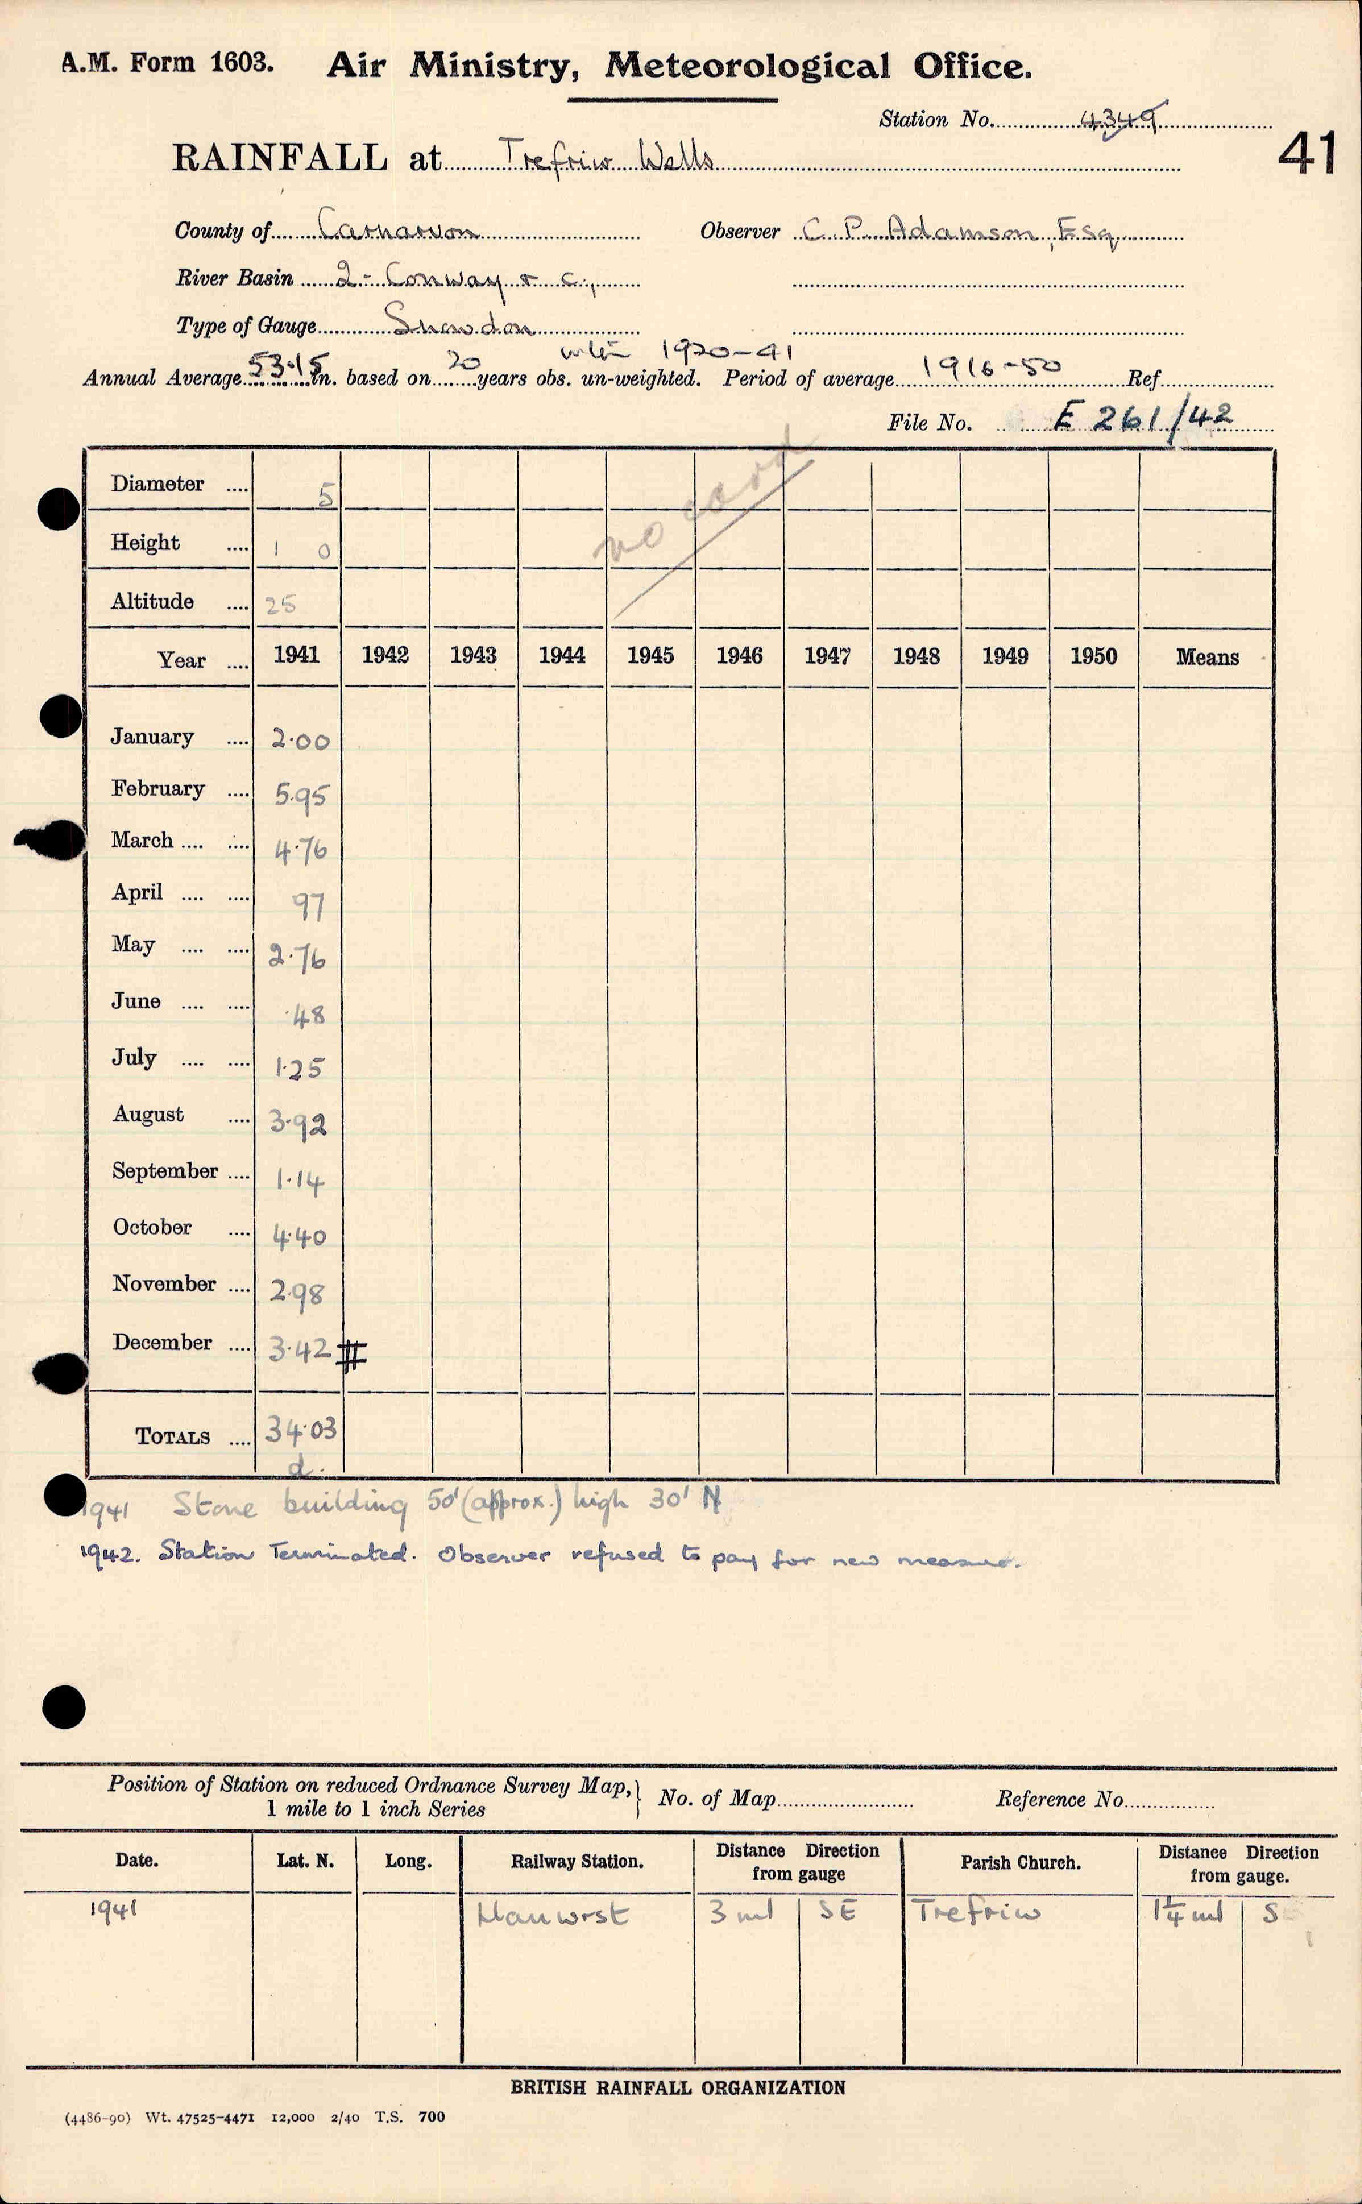 A.M. Form 1603. Air Ministry, Meteorological Office.
Station No. 4349
41
RAINFALL at Trefriw Wells
County of Carnarvon Observer C. P. Adamson, Esq
River Basin 2 - Conway & c.,
Type of Gauge Snowdon
within 1920-41
Annual Average 53.15 in. based on 20 years obs. un-weighted. Period of average 1916-50 Ref
File No. E 261/42
no card
Diameter .... 5
Height .... 1 0
Altitude .... 25
Year .... 1941 1942 1943 1944 1945 1946 1947 1948 1949 1950 Means
January .... 2.00
February .... 5.95
March .... .... 4.76
April .... .... 97
May .... .... 2.76
June .... .... .48
July .... .... 1.25
August .... 3.92
September .... 1.14
October .... 4.40
November .... 2.98
December .... 3.42 #
TOTALS .... 34.03
d.
1941 Stone building 50' (approx.) high 30' N
1942. Station Terminated. Observer refused to pay for new measure.
Position of Station on reduced Ordnance Survey Map, } No. of Map Reference No.
1 mile to 1 inch Series
Date. Lat. N. Long. Railway Station. Distance Direction from gauge Parish Church. Distance Direction from gauge.
1941 Llanwrst 3 ml SE Trefriw 1¼ ml S
BRITISH RAINFALL ORGANIZATION
(4486-90) Wt. 47525-4471 12,000 2/40 T.S. 700